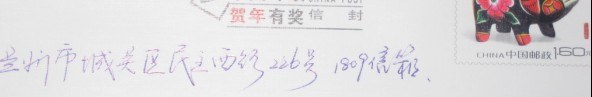 贺年有奖信封
CHINA中国邮政 160
兰州市城关区民主西路226号 1809信箱.